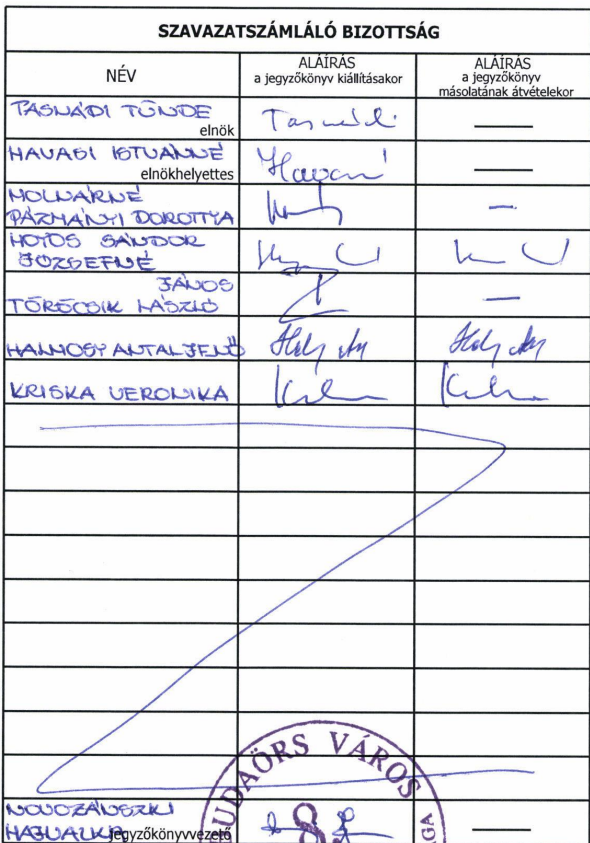 SZAVAZATSZÁMLÁLÓ BIZOTTSÁG
NÉV
ALÁÍRÁS
a jegyzőkönyv kiállításakor
ALÁÍRÁS
a jegyzőkönyv
másolatának átvételekor
TASNÁDI TÜNDE
elnök
HAVASI ISTVÁNNÉ
elnökhelyettes
MOLNÁRNÉ
PÁZMÁNYI DOROTTYA
SÁNDOR
JÓZSEFNÉ
JÁNOS
TÖRŐCSIK LÁSZLÓ
HALMOSY ANTAL JENŐ
KRISKA VERONIKA
BUDAÖRS VÁROS
83
HAJNALKA
jegyzőkönyvvezető